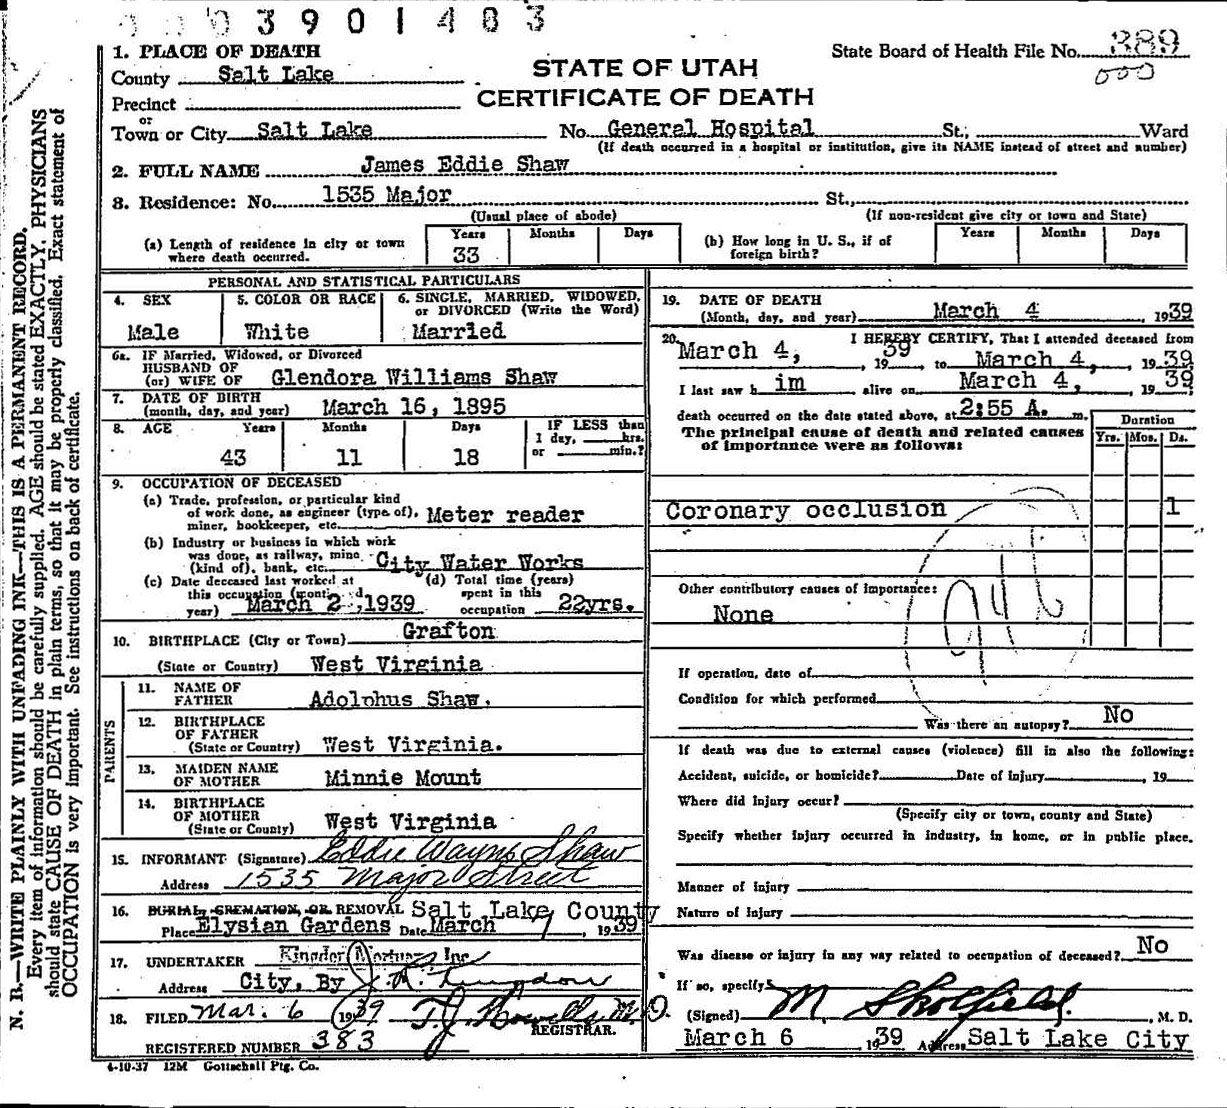 0003901483
State Board of Health File No. 389
000
STATE OF UTAH
CERTIFICATE OF DEATH
1. PLACE OF DEATH
County Salt Lake
Precinct
or
Town or City Salt Lake No. General Hospital St.; Ward
(If death occurred in a hospital or institution, give its NAME instead of street and number)
2. FULL NAME James Eddie Shaw
3. Residence: No. 1535 Major St.,
(Usual place of abode) (If non-resident give city or town and State)
(a) Length of residence in city or town where death occurred. Years 33 Months Days
(b) How long in U. S., if of foreign birth? Years Months Days
PERSONAL AND STATISTICAL PARTICULARS
4. SEX Male
5. COLOR OR RACE White
6. SINGLE, MARRIED, WIDOWED, or DIVORCED (Write the Word) Married
6a. IF Married, Widowed, or Divorced
HUSBAND OF
(or) WIFE OF Glendora Williams Shaw
7. DATE OF BIRTH
(month, day, and year) March 16, 1895
8. AGE Years 43 Months 11 Days 18
IF LESS than 1 day, hrs. or min.?
9. OCCUPATION OF DECEASED
(a) Trade, profession, or particular kind
of work done, as engineer (type of), Meter reader
miner, bookkeeper, etc.
(b) Industry or business in which work
was done, as railway, mine
(kind of), bank, etc. City Water Works
(c) Date deceased last worked at
this occupation (month and
year) March 2, 1939
(d) Total time (years)
spent in this
occupation 22yrs.
10. BIRTHPLACE (City or Town) Grafton
(State or Country) West Virginia
PARENTS
11. NAME OF
FATHER Adolphus Shaw.
12. BIRTHPLACE
OF FATHER
(State or Country) West Virginia.
13. MAIDEN NAME
OF MOTHER Minnie Mount
14. BIRTHPLACE
OF MOTHER
(State or County) West Virginia
15. INFORMANT (Signature) Eddie Wayne Shaw
Address 1535 Major Street
16. BURIAL, CREMATION, OR REMOVAL Salt Lake County
Place Elysian Gardens Date March 7, 1939
17. UNDERTAKER Mortuary Inc
Address City, By
18. FILED Mar. 6 1939 M.D.
REGISTRAR.
REGISTERED NUMBER 383
4-10-37 12M Gottschall Ptg. Co.
19. DATE OF DEATH
(Month, day, and year) March 4, 1939
20. I HEREBY CERTIFY, That I attended deceased from
March 4, 1939 to March 4, 1939
I last saw him alive on March 4, 1939
death occurred on the date stated above, at 2:55 A. m.
The principal cause of death and related causes
of importance were as follows:
Duration
Yrs. Mos. Ds.
Coronary occlusion 1
94b
Other contributory causes of importance:
None
If operation, date of
Condition for which performed
Was there an autopsy? No
If death was due to external causes (violence) fill in also the following:
Accident, suicide, or homicide? Date of injury, 19
Where did injury occur?
(Specify city or town, county and State)
Specify whether injury occurred in industry, in home, or in public place.
Manner of Injury
Nature of Injury
Was disease or injury in any way related to occupation of deceased? No
If so, specify
(Signed) M. , M. D.
March 6 1939 Address Salt Lake City
N. B.—WRITE PLAINLY WITH UNFADING INK—THIS IS A PERMANENT RECORD.
Every item of information should be carefully supplied. AGE should be stated EXACTLY. PHYSICIANS
should state CAUSE OF DEATH in plain terms, so that it may be properly classified. Exact statement of
OCCUPATION is very important. See instructions on back of certificate.